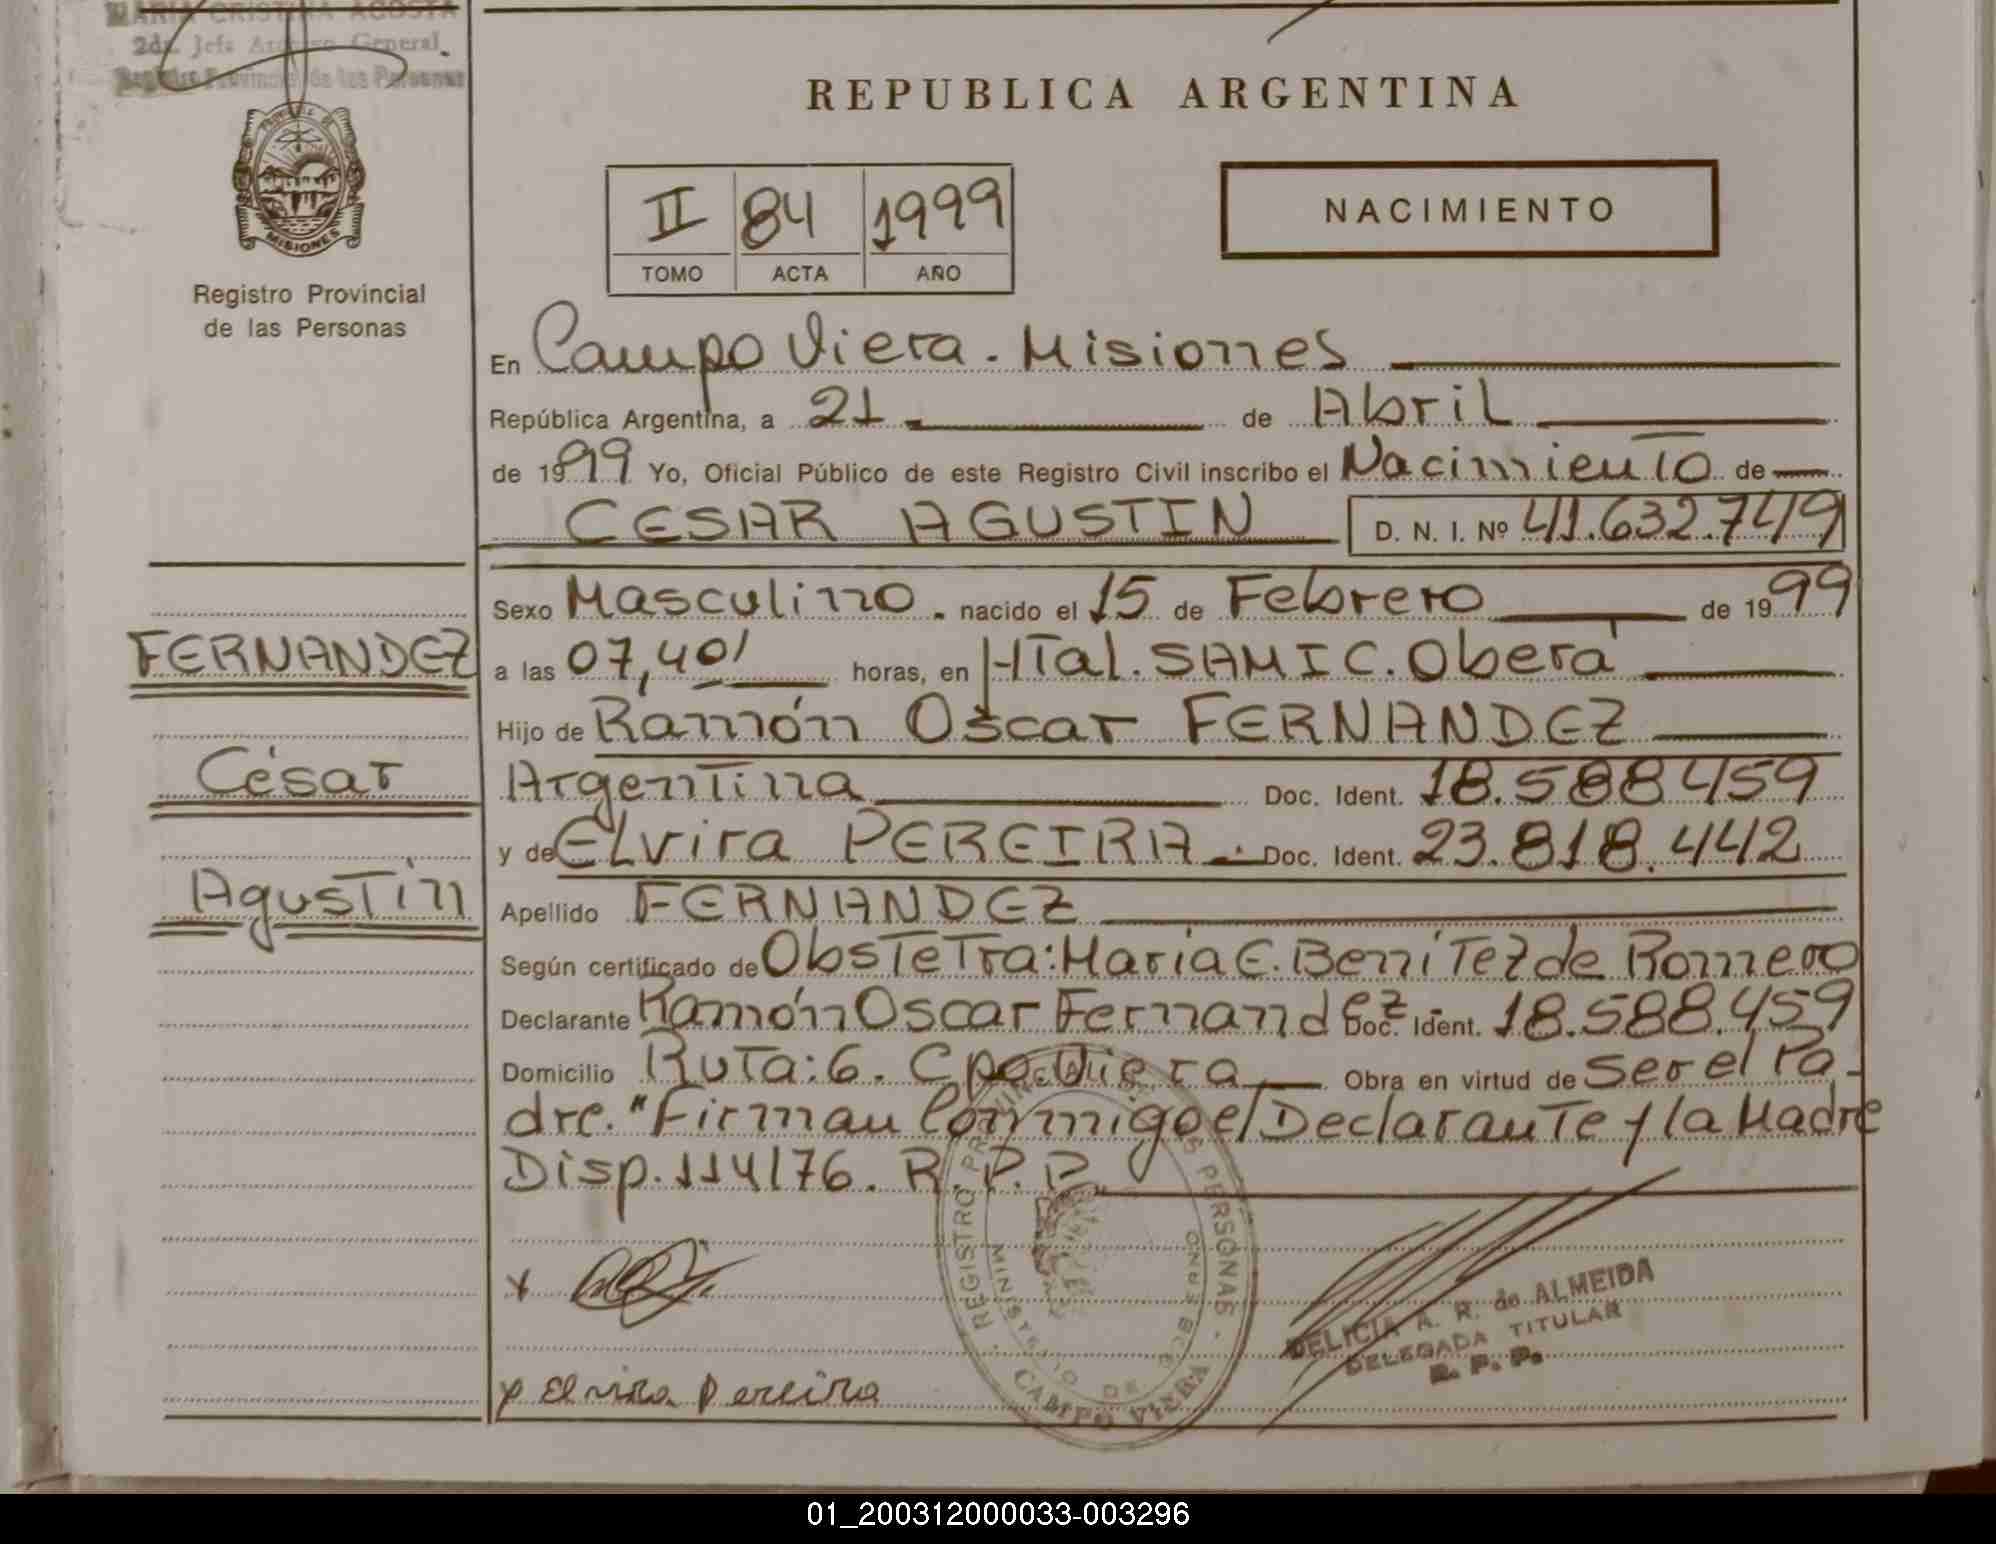 MARIA CRISTINA ACOSTA
2da. Jefa Archivo General
Registro Provincial de las Personas
MISIONES
Registro Provincial
de las Personas
FERNANDEZ
César
Agustín
REPUBLICA ARGENTINA
II 84 1999
TOMO ACTA AÑO
NACIMIENTO
En Campo Viera. Misiones
República Argentina, a 21 de Abril
de 1999 Yo, Oficial Público de este Registro Civil inscribo el Nacimiento de
CESAR AGUSTIN D. N. I. Nº 41.632.749
Sexo Masculino. nacido el 15 de Febrero de 1999
a las 07,40' horas, en HTal. SAMIC. Oberá
Hijo de Ramón Oscar FERNANDEZ
Argentina Doc. Ident. 18.588459
y de Elvira PEREIRA. Doc. Ident. 23.818.442
Apellido FERNANDEZ
Según certificado de ObsTeTra: María E. BeníTez de Romero
Declarante Ramón Oscar Fernandez Doc. Ident. 18.588.459
Domicilio RuTa: 6. Cpo Viera Obra en virtud de ser el Pa-
dre. "Firman Conmigo el Declarante y la Madre
Disp. 114/76. R. P. P.
REGISTRO PROVINCIAL DE LAS PERSONAS
MINISTERIO DE GOBIERNO
CAMPO VIERA
x
x Elvira Pereira
DELICIA A. R. de ALMEIDA
DELEGADA TITULAR
R. P. P.
01_200312000033-003296